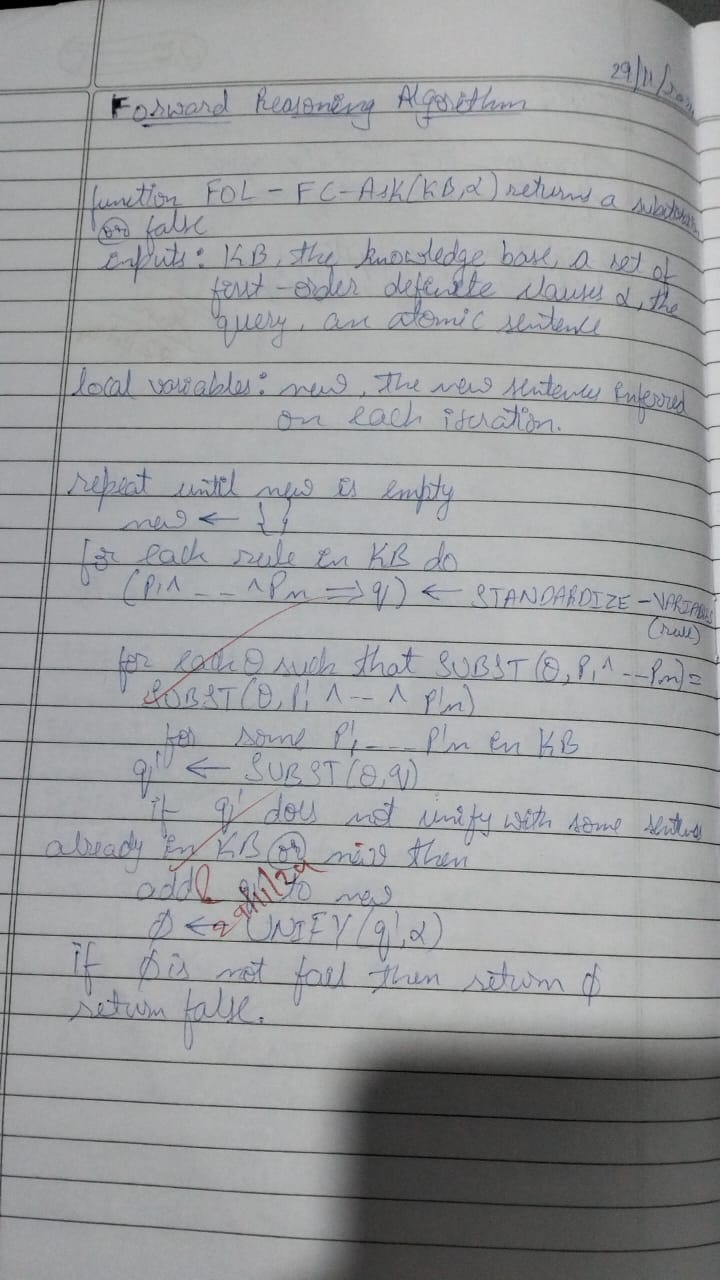 29/11/
Forward Reasoning Algorithm
function FOL - FC-Ask(KB,α) returns a
or false
inputs: KB, the knowledge base, a set of
first-order definite clauses α, the
query, an atomic sentence
local variables: new, the new sentences inferred
on each iteration.
repeat until new is empty
new ← { }
for each rule in KB do
(P₁∧ -- - ∧Pn ⇒ q) ← STANDARDIZE - VARIABLES
(rule)
for each θ such that SUBST(θ, P₁∧ --Pn) =
SUBST(θ, P'₁ ∧ -- ∧ P'n)
for some P'₁ --- P'n in KB
q' ← SUBST(θ,q)
if q' does not unify with some sentence
already in KB or new then
add q' to new
29/11/24
φ ← UNIFY(q',α)
if φ is not fail then return φ
return false.